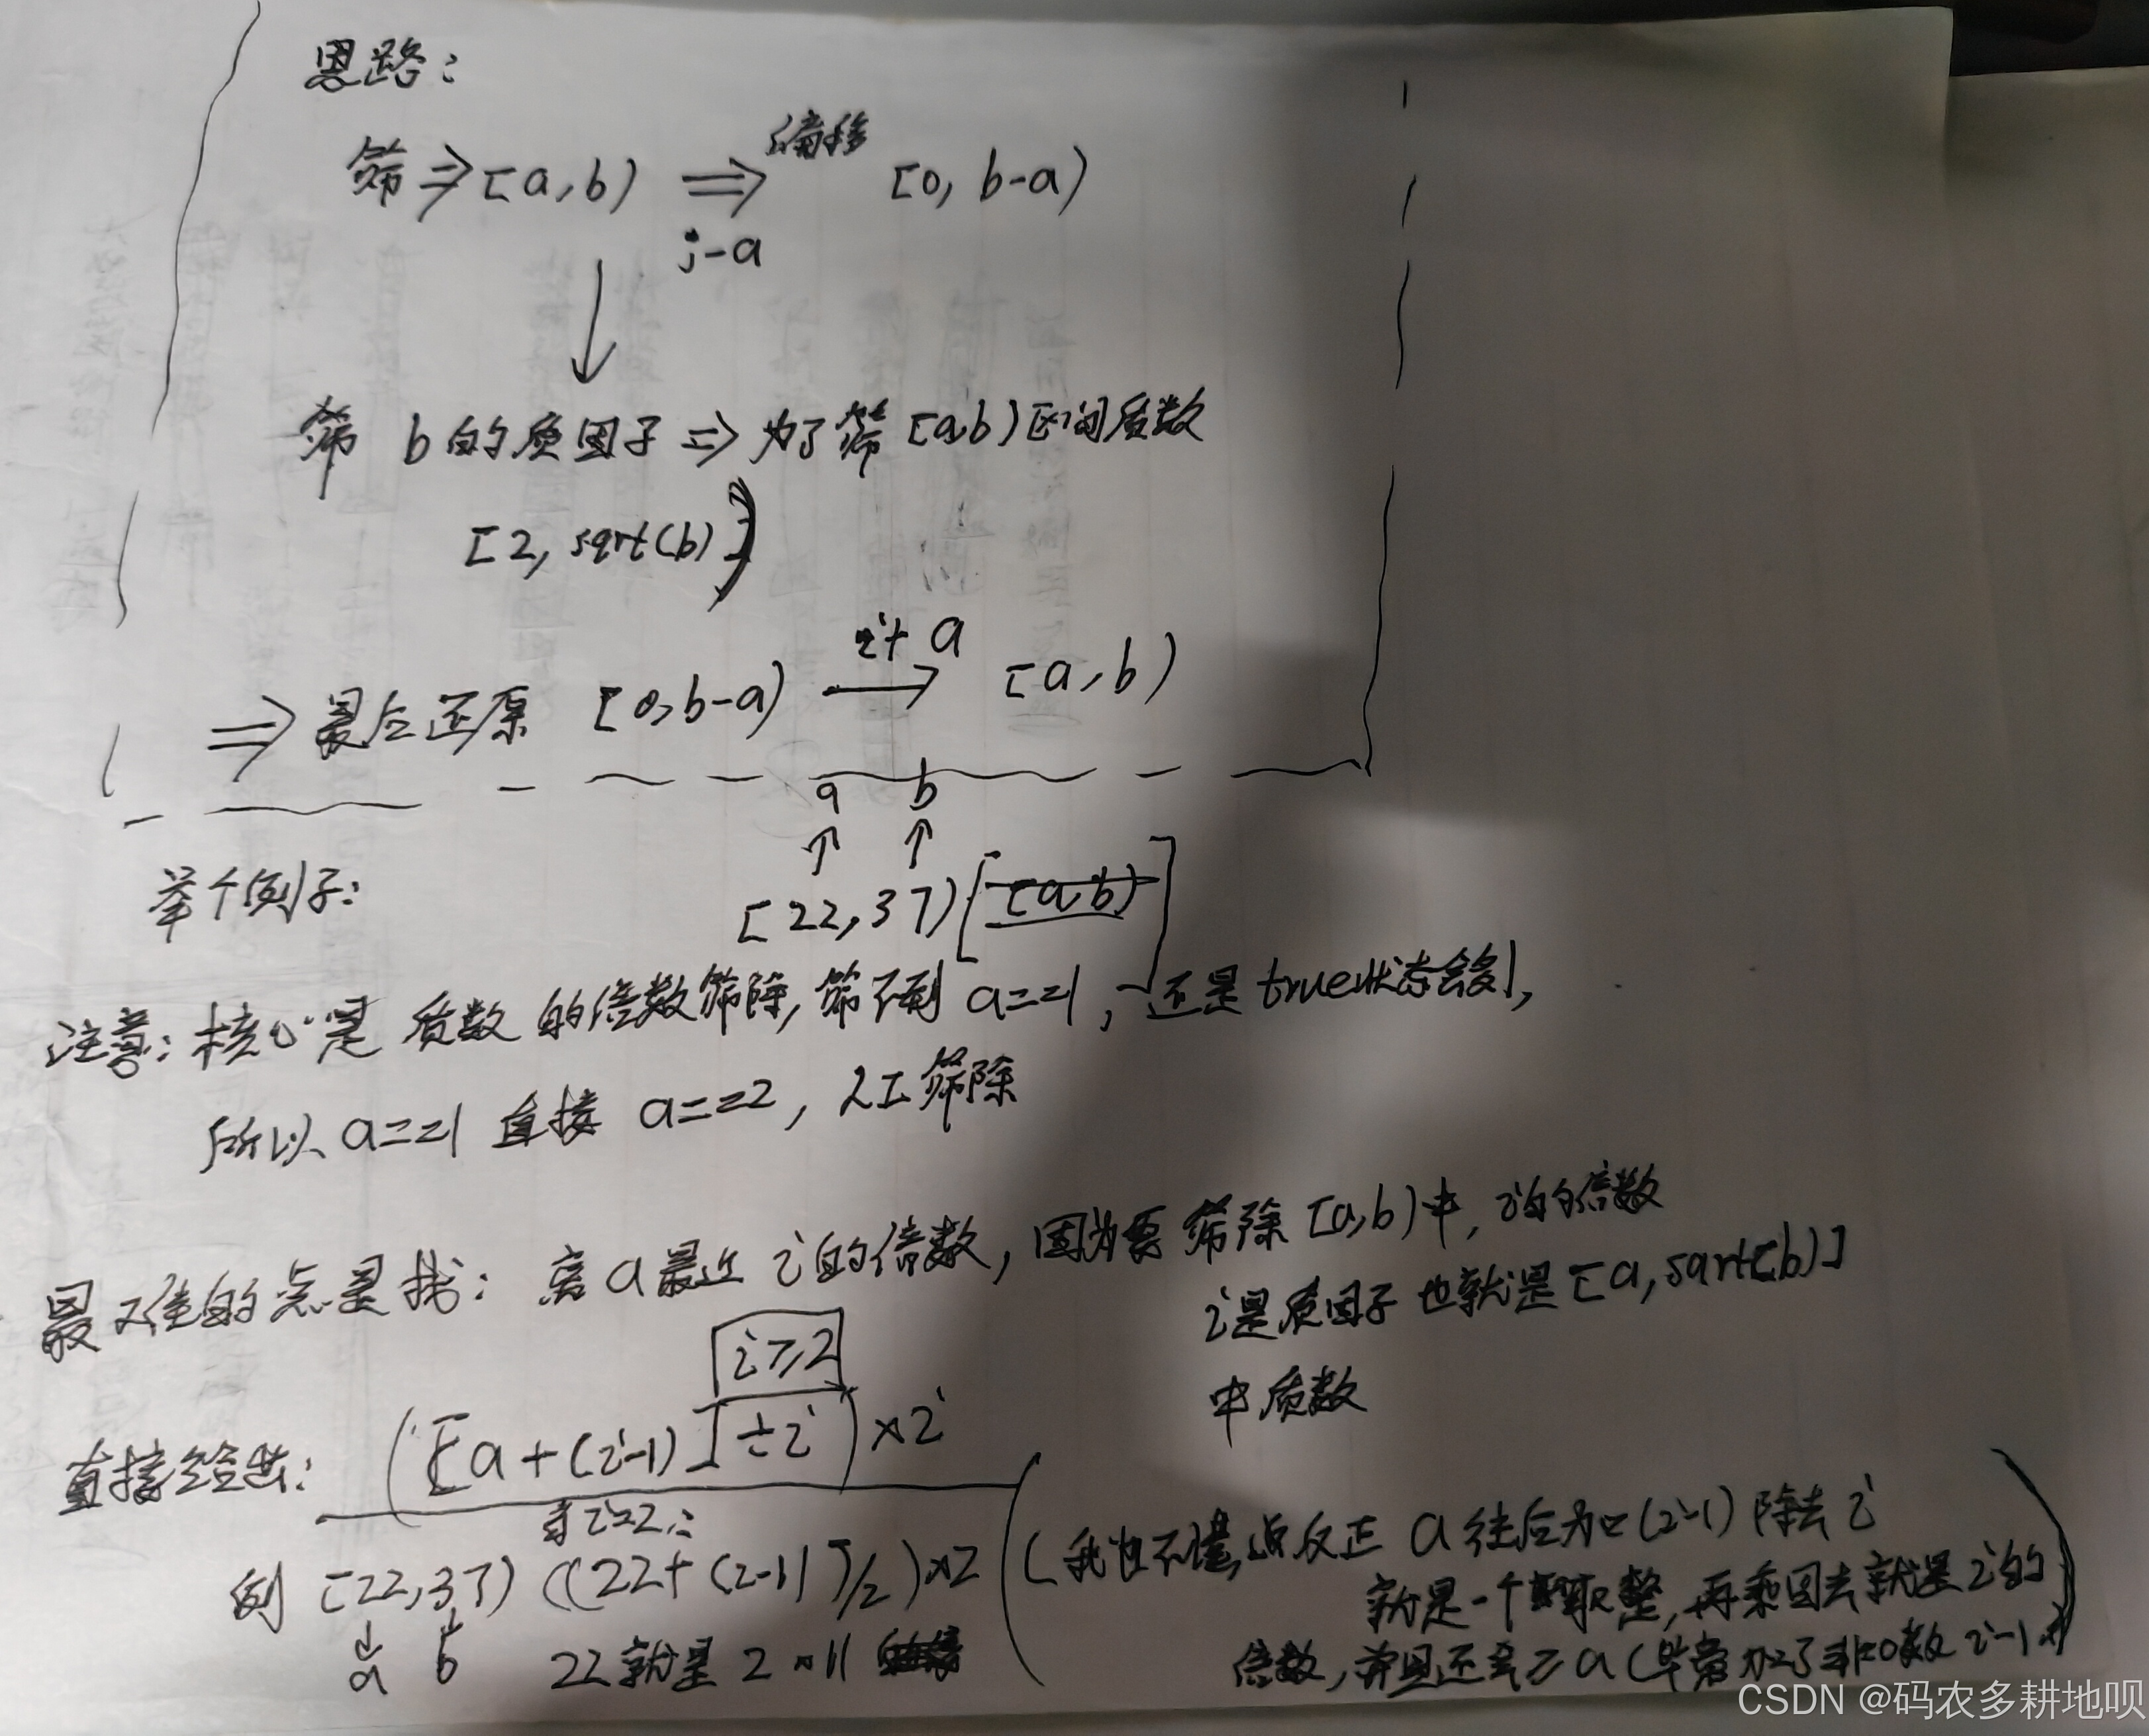 思路：
筛 ⇒ [a, b) ⇒ 偏移 [0, b-a)
j-a
↓
筛 b的质因子 ⇒ 为了筛 [a,b)区间质数
[2, sqrt(b))
⇒ 最后还原 [0, b-a) → i+a [a, b)
a b
↑ ↑
举个例子：
[22, 37)
注意：核心是 质数 的倍数筛除，筛不到 a==1，还是true状态会多1，
所以 a==1 直接 a==2，人工筛除
最难的点是找：离a最近 i的倍数，因为要 筛除 [a,b)中，i的倍数
i是质因子 也就是 [a, sqrt(b)]
中质数
i≥2
直接给出：([a+(i-1)]÷i)×i
当i=2：
例 [22, 37) ((22+(2-1)]/2)×2
(我也不懂，反正 a 往后加 (i-1) 除去 i
就是一个取整，再乘回去就是i的
倍数，并且还会≥a (毕竟加了非0数 i-1)
↓ ↓
a b
22就是 2×11
CSDN @码农多耕地呗